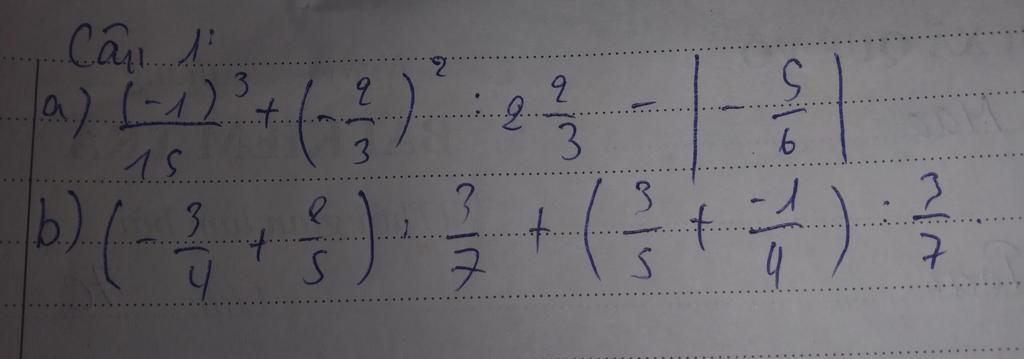 Câu 1:
a) (-1)³/15 + (-2/3)² : 2 2/3 - |-5/6|
b) (-3/4 + 2/5) : 3/7 + (3/5 + -1/4) : 3/7.